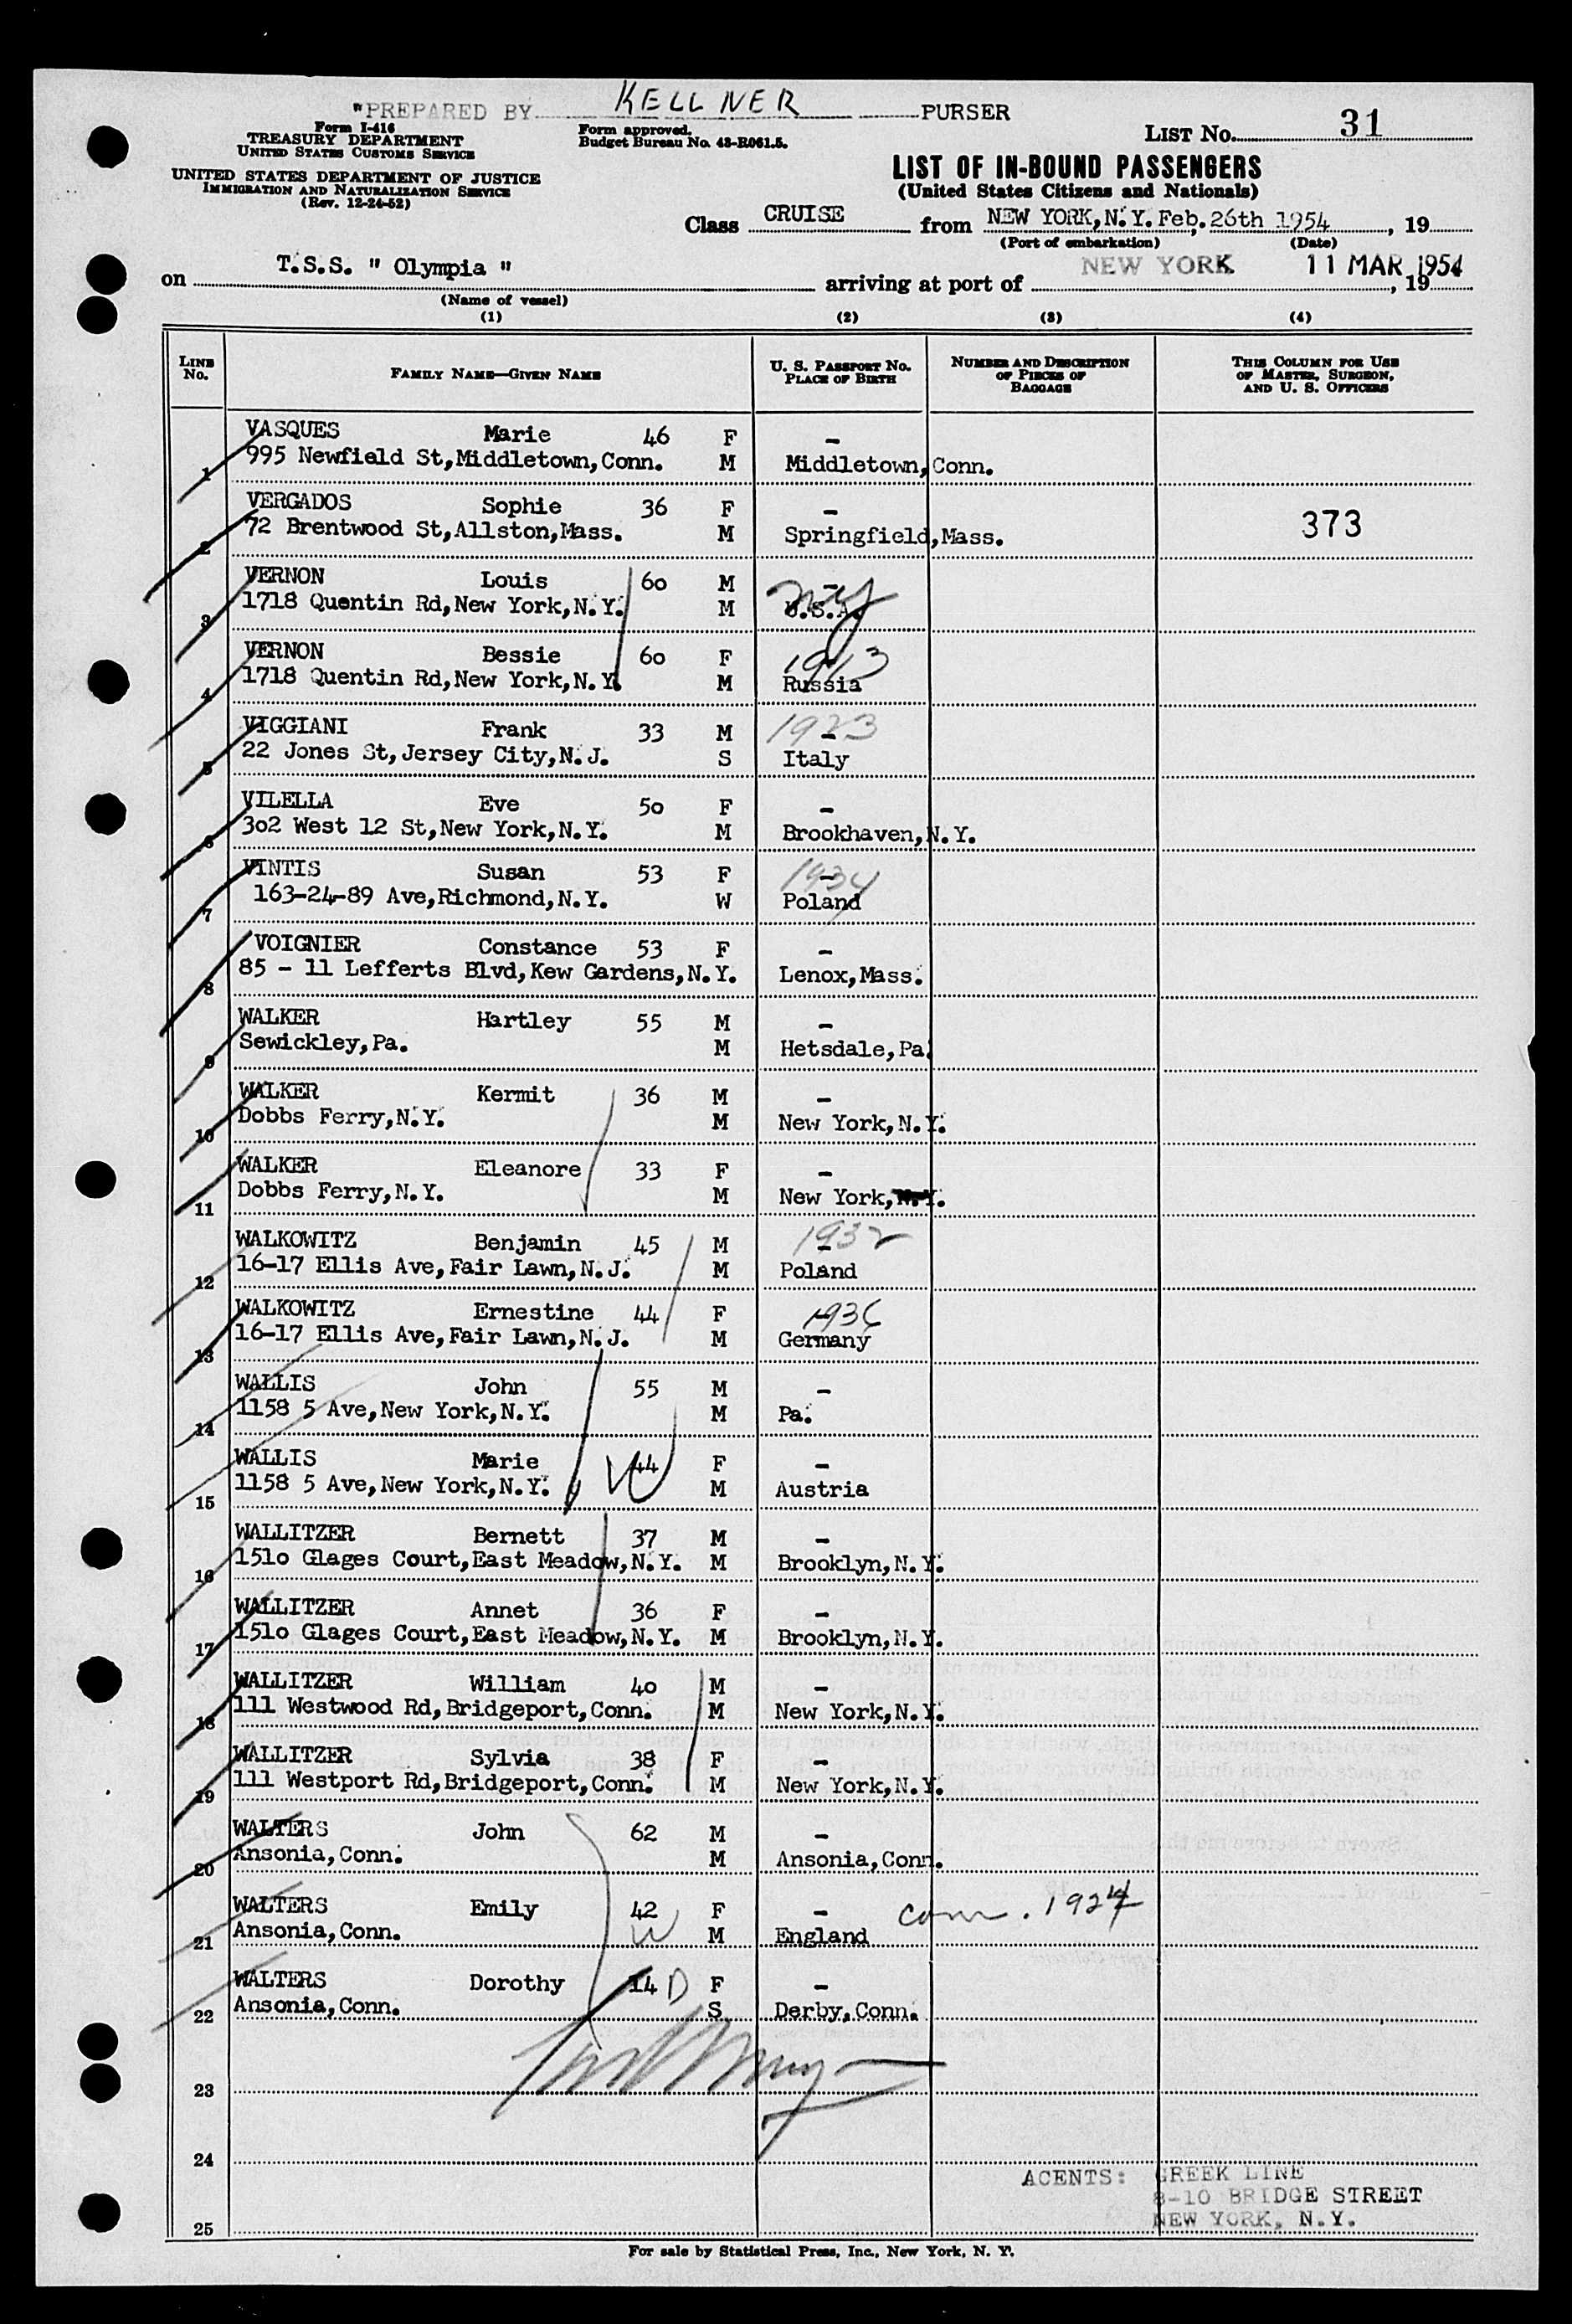 "PREPARED BY KELLNER PURSER
Form I-416
TREASURY DEPARTMENT
UNITED STATES CUSTOMS SERVICE
Form approved.
Budget Bureau No. 43-R061.5.
LIST NO. 31
UNITED STATES DEPARTMENT OF JUSTICE
IMMIGRATION AND NATURALIZATION SERVICE
(Rev. 12-24-52)
LIST OF IN-BOUND PASSENGERS
(United States Citizens and Nationals)
Class CRUISE from NEW YORK,N.Y. Feb. 26th 1954, 19
(Port of embarkation) (Date)
on T.S.S. " Olympia " arriving at port of NEW YORK 11 MAR 1954, 19
(Name of vessel)
(1) (2) (3) (4)
LINE No. FAMILY NAME—GIVEN NAME U. S. PASSPORT NO. PLACE OF BIRTH NUMBER AND DESCRIPTION OF PIECES OF BAGGAGE THIS COLUMN FOR USE OF MASTER, SURGEON, AND U. S. OFFICERS
VASQUES Marie 46 F -
1 995 Newfield St,Middletown,Conn. M Middletown,Conn.
VERGADOS Sophie 36 F - 373
2 72 Brentwood St,Allston,Mass. M Springfield,Mass.
VERNON Louis 60 M - NY
3 1718 Quentin Rd,New York,N.Y. M U.S.A.
VERNON Bessie 60 F 1913
4 1718 Quentin Rd,New York,N.Y. M Russia
VIGGIANI Frank 33 M - 1923
5 22 Jones St,Jersey City,N.J. S Italy
VILELLA Eve 50 F -
6 302 West 12 St,New York,N.Y. M Brookhaven,N.Y.
VINTIS Susan 53 F - 1934
7 163-24-89 Ave,Richmond,N.Y. W Poland
VOIGNIER Constance 53 F -
8 85 - 11 Lefferts Blvd,Kew Gardens,N.Y. Lenox,Mass.
WALKER Hartley 55 M -
9 Sewickley,Pa. M Hetsdale,Pa.
WALKER Kermit 36 M -
10 Dobbs Ferry,N.Y. M New York,N.Y.
WALKER Eleanore 33 F -
11 Dobbs Ferry,N.Y. M New York,N.Y.
WALKOWITZ Benjamin 45 M - 1932
12 16-17 Ellis Ave,Fair Lawn,N.J. M Poland
WALKOWITZ Ernestine 44 F - 1936
13 16-17 Ellis Ave,Fair Lawn,N.J. M Germany
WALLIS John 55 M -
14 1158 5 Ave,New York,N.Y. M Pa.
WALLIS Marie 44 W F -
15 1158 5 Ave,New York,N.Y. M Austria
WALLITZER Bernett 37 M -
16 1510 Glages Court,East Meadow,N.Y. M Brooklyn,N.Y.
WALLITZER Annet 36 F -
17 1510 Glages Court,East Meadow,N.Y. M Brooklyn,N.Y.
WALLITZER William 40 M -
18 111 Westwood Rd,Bridgeport,Conn. M New York,N.Y.
WALLITZER Sylvia 38 F -
19 111 Westport Rd,Bridgeport,Conn. M New York,N.Y.
WALTERS John 62 M -
20 Ansonia,Conn. M Ansonia,Conn.
WALTERS Emily 42 F - Conn. 1924
21 Ansonia,Conn. W M England
WALTERS Dorothy 14 D F -
22 Ansonia,Conn. S Derby,Conn.
23
24
ACENTS: GREEK LINE
8-10 BRIDGE STREET
NEW YORK, N.Y.
25
For sale by Statistical Press, Inc., New York, N. Y.